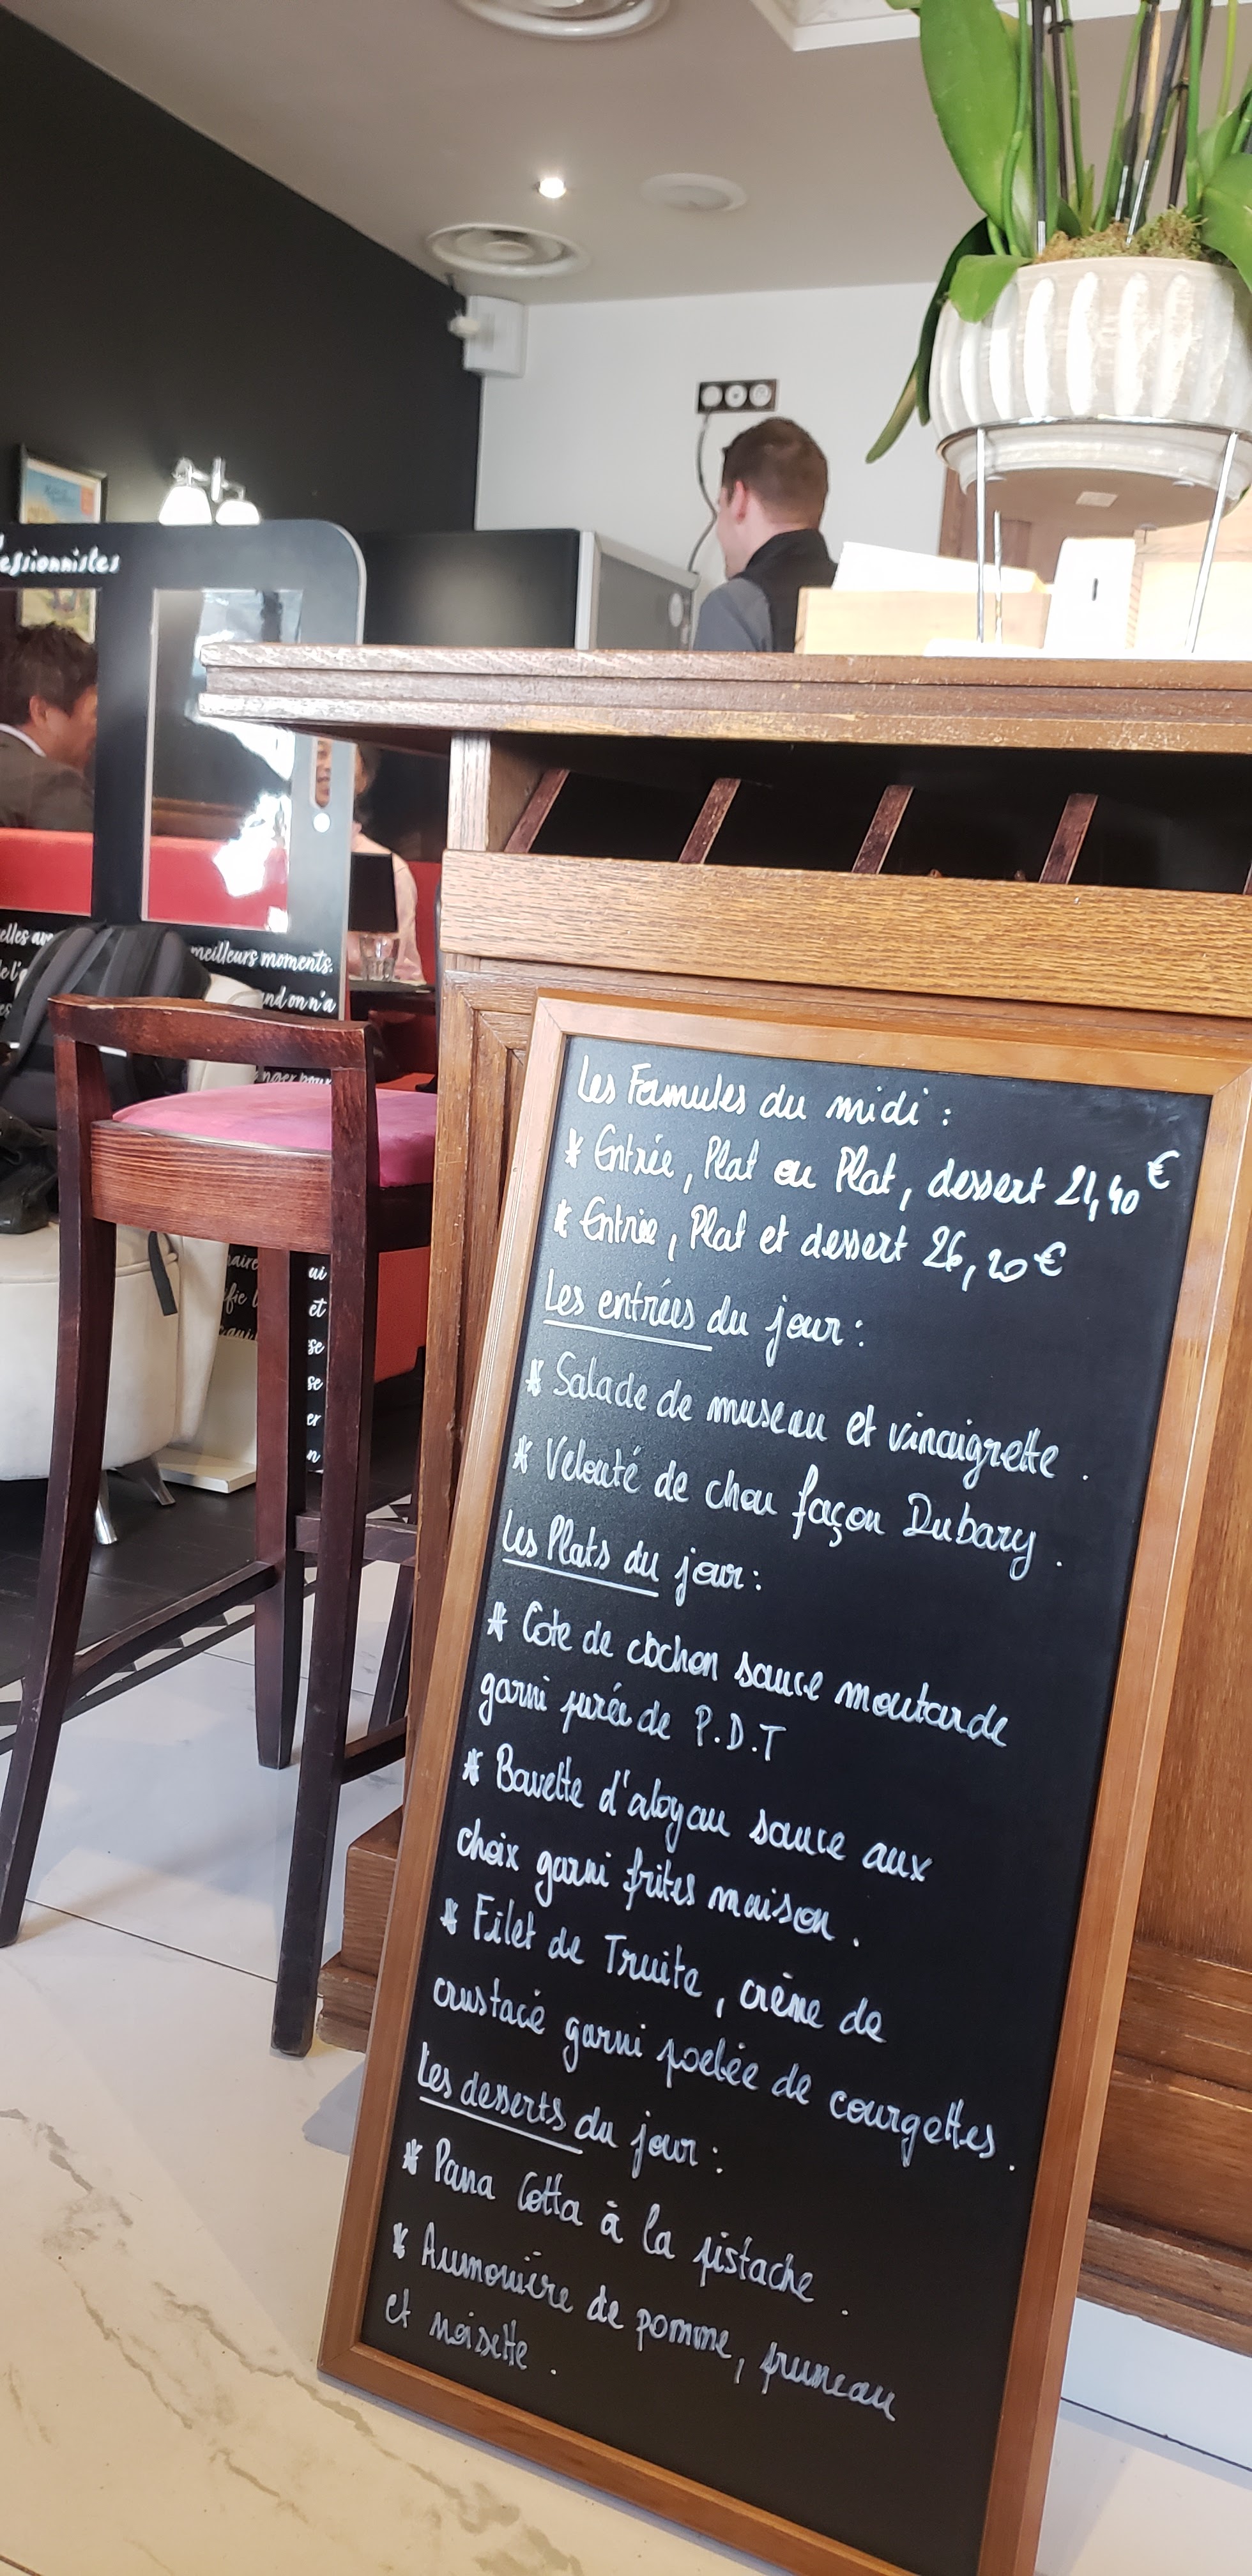 essionnistes
meilleurs moments.
and on n'a
anger pour
ui
et
se
se
er
n
Les Formules du midi :
* Entrée, Plat ou Plat, dessert 21,40€
* Entrée, Plat et dessert 26,20€
Les entrées du jour :
* Salade de museau et vinaigrette .
* Velouté de chou façon Dubary .
Les Plats du jour :
* Cote de cochon sauce moutarde
garni purée de P.D.T
* Bavette d'aloyau sauce aux
choix garni frites maison .
* Filet de Truite, crème de
crustacé garni poelée de courgettes .
Les desserts du jour :
* Pana Cotta à la pistache .
* Aumonière de pomme, pruneau
et noisette .